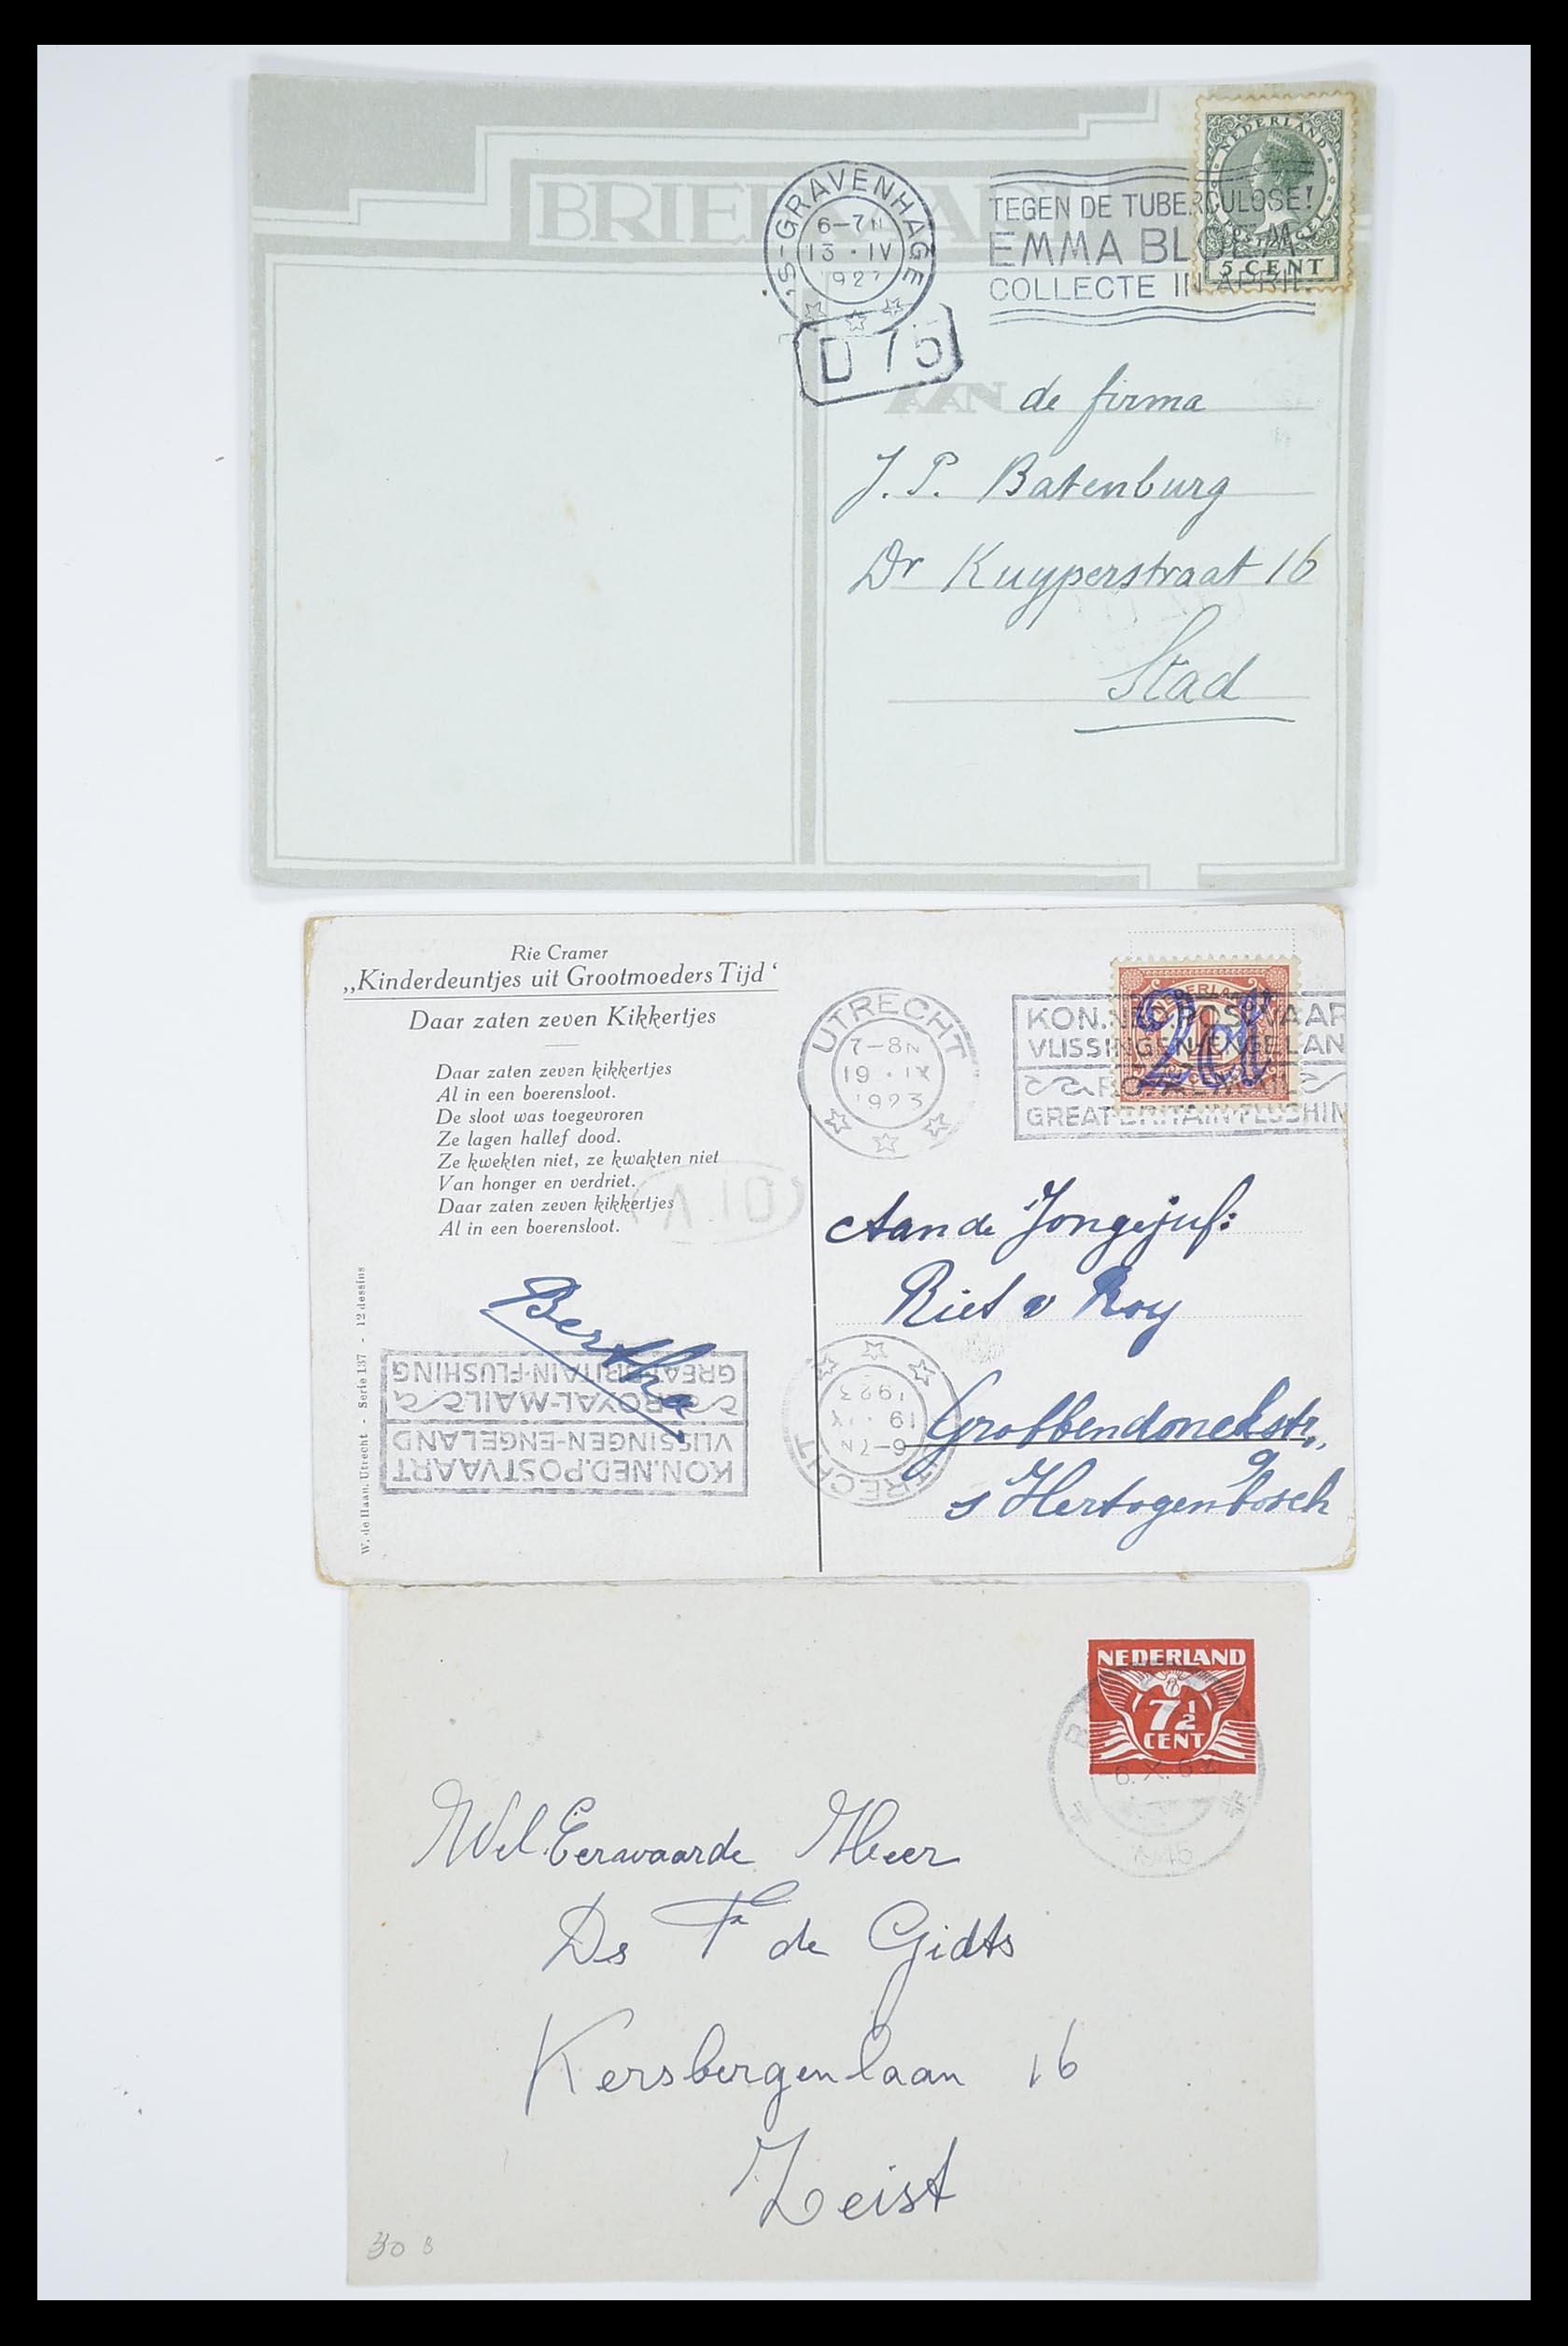 BRIEFKAART
'S-GRAVENHAGE
6-7N
13 · IV
1927
TEGEN DE TUBERCULOSE!
EMMA BLOEM
COLLECTE IN APRIL.
NEDERLAND
5 CENT
D 75
AAN de firma
J. P. Batenburg
Dr Kuyperstraat 16
Stad
Rie Cramer
„Kinderdeuntjes uit Grootmoeders Tijd‘
Daar zaten zeven Kikkertjes
Daar zaten zeven kikkertjes
Al in een boerensloot.
De sloot was toegevroren
Ze lagen hallef dood.
Ze kwekten niet, ze kwakten niet
Van honger en verdriet.
Daar zaten zeven kikkertjes
Al in een boerensloot.
W. de Haan, Utrecht - Serie 137 - 12 dessins
Bertha
UTRECHT
7-8N
19 · IX
1923
KON.NED.POSTVAAR
VLISSINGEN-ENGELAN
ROYAL-MAIL
GREAT-BRITAIN-FLUSHIN
NEDERLAND
2ct
Aan de Jongejuf:
Riet v Roy
Grobbendonckstr,,
9
s Hertogenbosch
UTRECHT
6-7N
19 · IX
1923
KON.NED.POSTVAART
VLISSINGEN-ENGELAND
ROYAL-MAIL
GREAT-BRITAIN-FLUSHING
NEDERLAND
7½
CENT
Wel.Eerwaarde Heer
Ds Fr de Gidts
Kersbergenlaan 16
Zeist
30 B